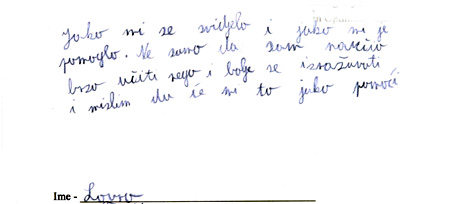 Jako mi se svidjelo i jako mi je
pomoglo. Ne samo da sam naučio
brzo učiti nego i bolje se izražavati
i mislim da će mi to jako pomoći
Ime - Lovro